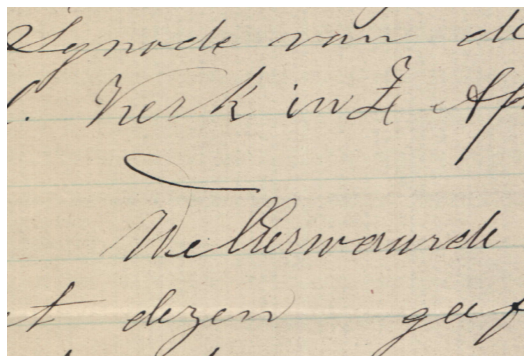 Synode van de
Kerk in Z. Af
WelEerwaarde
t dezen geef